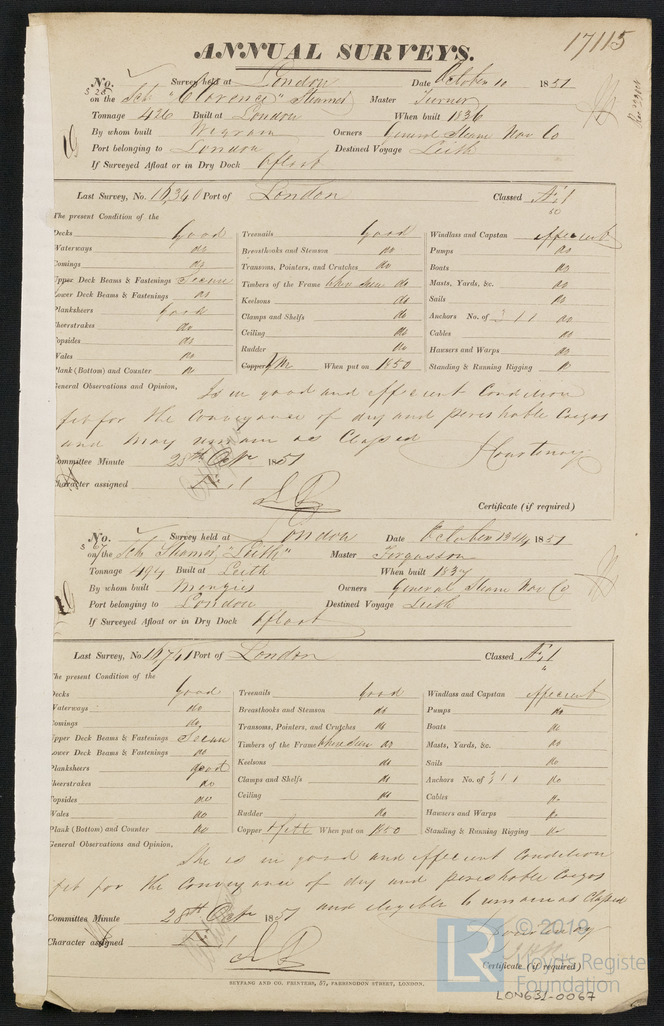 17115
ANNUAL SURVEYS.
No. Survey held at London Date October 10 1851
on the Sch "Clarence" Steamer Master Turner
Tonnage 426 Built at London When built 1836
By whom built Wigram Owners General Steam Nav Co
Port belonging to London Destined Voyage Leith
If Surveyed Afloat or in Dry Dock Afloat
Last Survey, No. 16,340 Port of London Classed A1
The present Condition of the
Decks Good Treenails Good Windlass and Capstan Efficient
Waterways do Breasthooks and Stemson do Pumps do
Comings do Transoms, Pointers, and Crutches do Boats do
Upper Deck Beams & Fastenings Seem Timbers of the Frame when seen do Masts, Yards, &c. do
Lower Deck Beams & Fastenings do Keelsons do Sails do
Planksheers Good Clamps and Shelfs do Anchors No. of 3 1 1 do
Sheerstrakes do Ceiling do Cables do
Topsides do Rudder do Hawsers and Warps do
Wales do Copper YM When put on 1850 Standing & Running Rigging do
Plank (Bottom) and Counter do
General Observations and Opinion, Is in good and efficient condition
fit for the conveyance of dry and perishable Cargos
and may remain as Classed J Courtenay
Committee Minute 28th Octr 1851
Character assigned A1
Certificate (if required)
No. Survey held at London Date October 13 & 14 1851
on the Sch Steamer "Leith" Master Fergusson
Tonnage 494 Built at Leith When built 1837
By whom built Menzies Owners General Steam Nav Co
Port belonging to London Destined Voyage Leith
If Surveyed Afloat or in Dry Dock Afloat
Last Survey, No. 16,741 Port of London Classed A1
The present Condition of the
Decks Good Treenails Good Windlass and Capstan Efficient
Waterways do Breasthooks and Stemson do Pumps do
Comings do Transoms, Pointers, and Crutches do Boats do
Upper Deck Beams & Fastenings Seem Timbers of the Frame when seen do Masts, Yards, &c. do
Lower Deck Beams & Fastenings do Keelsons do Sails do
Planksheers good Clamps and Shelfs do Anchors No. of 3 1 1 do
Sheerstrakes do Ceiling do Cables do
Topsides do Rudder do Hawsers and Warps do
Wales do Copper & felt When put on 1850 Standing & Running Rigging do
Plank (Bottom) and Counter do
General Observations and Opinion,
She is in good and efficient condition
fit for the conveyance of dry and perishable Cargos
and eligible to remain as Classed
Committee Minute 28th Octr 1851
J Courtenay
Character assigned A1
Certificate (if required)
SEYFANG AND CO. PRINTERS, 57, FARRINGDON STREET, LONDON.
LR © 2019
Lloyd's Register
Foundation
LON631-0067